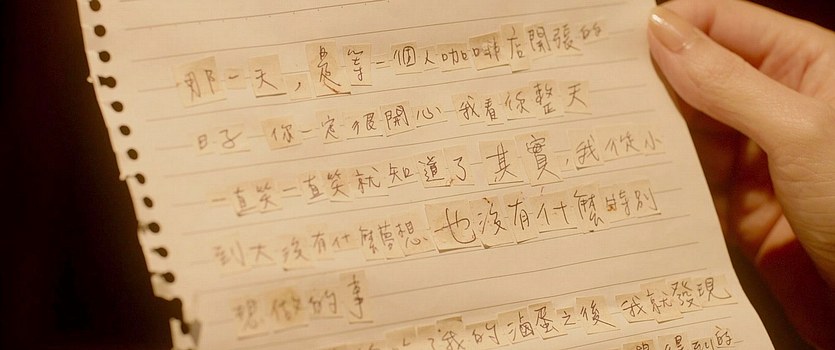 那一天，是等一個人咖啡店開張的
日子 你一定很開心 我看你整天
一直笑一直笑就知道了 其實，我從小
到大沒有什麼夢想 也沒有什麼特別
想做的事
了我的滷蛋之後 我就發現
得到的